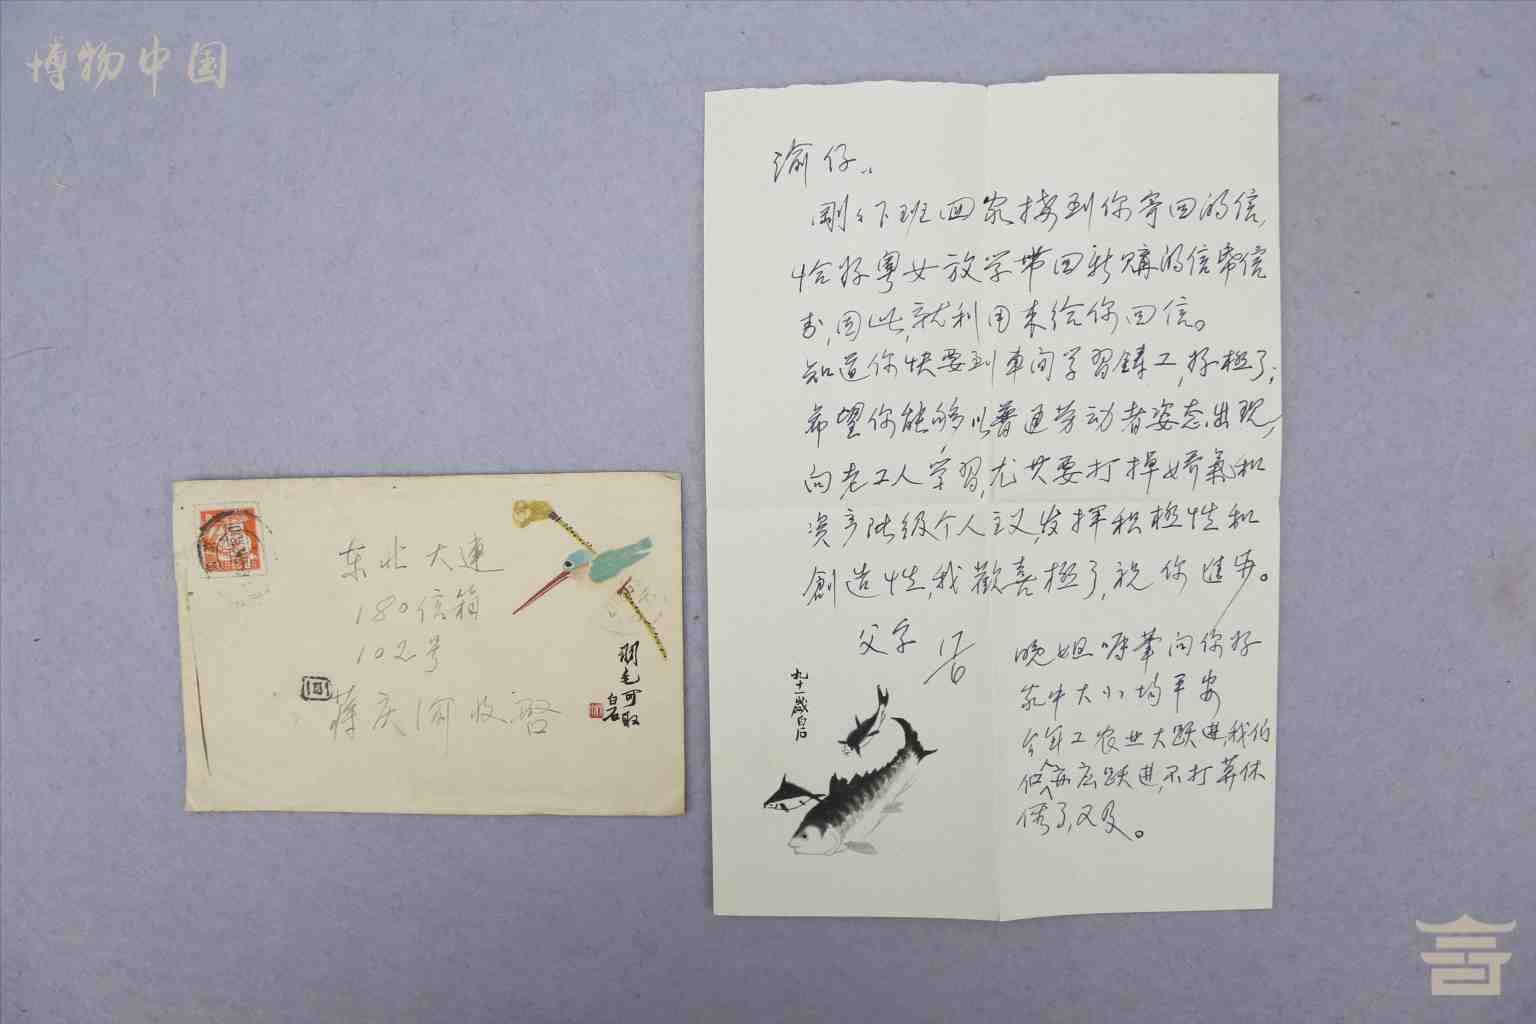 博物中国
东北大連
180信箱
102号
蒋庆渝收啓
羽毛可取
白石
渝仔:
剛々下班回家接到你寄回的信,
恰好粵女放学带回新購的信箋信
封,因此,就利用来给你回信。
知道你快要到車间学習鋳工,好極了;
希望你能够以普通劳动者姿态出现,
向老工人学習,尤其要打掉娇氣和
资产阶级个人主义,发挥积極性和
創造性,我歡喜極了,祝你進步。
父字 17/6
晚姐嘱筆问你好
家中大小均平安
今年工农业大跃進,我伯
们亦应跃進,不打算休
假了,又及。
九十一歲白石